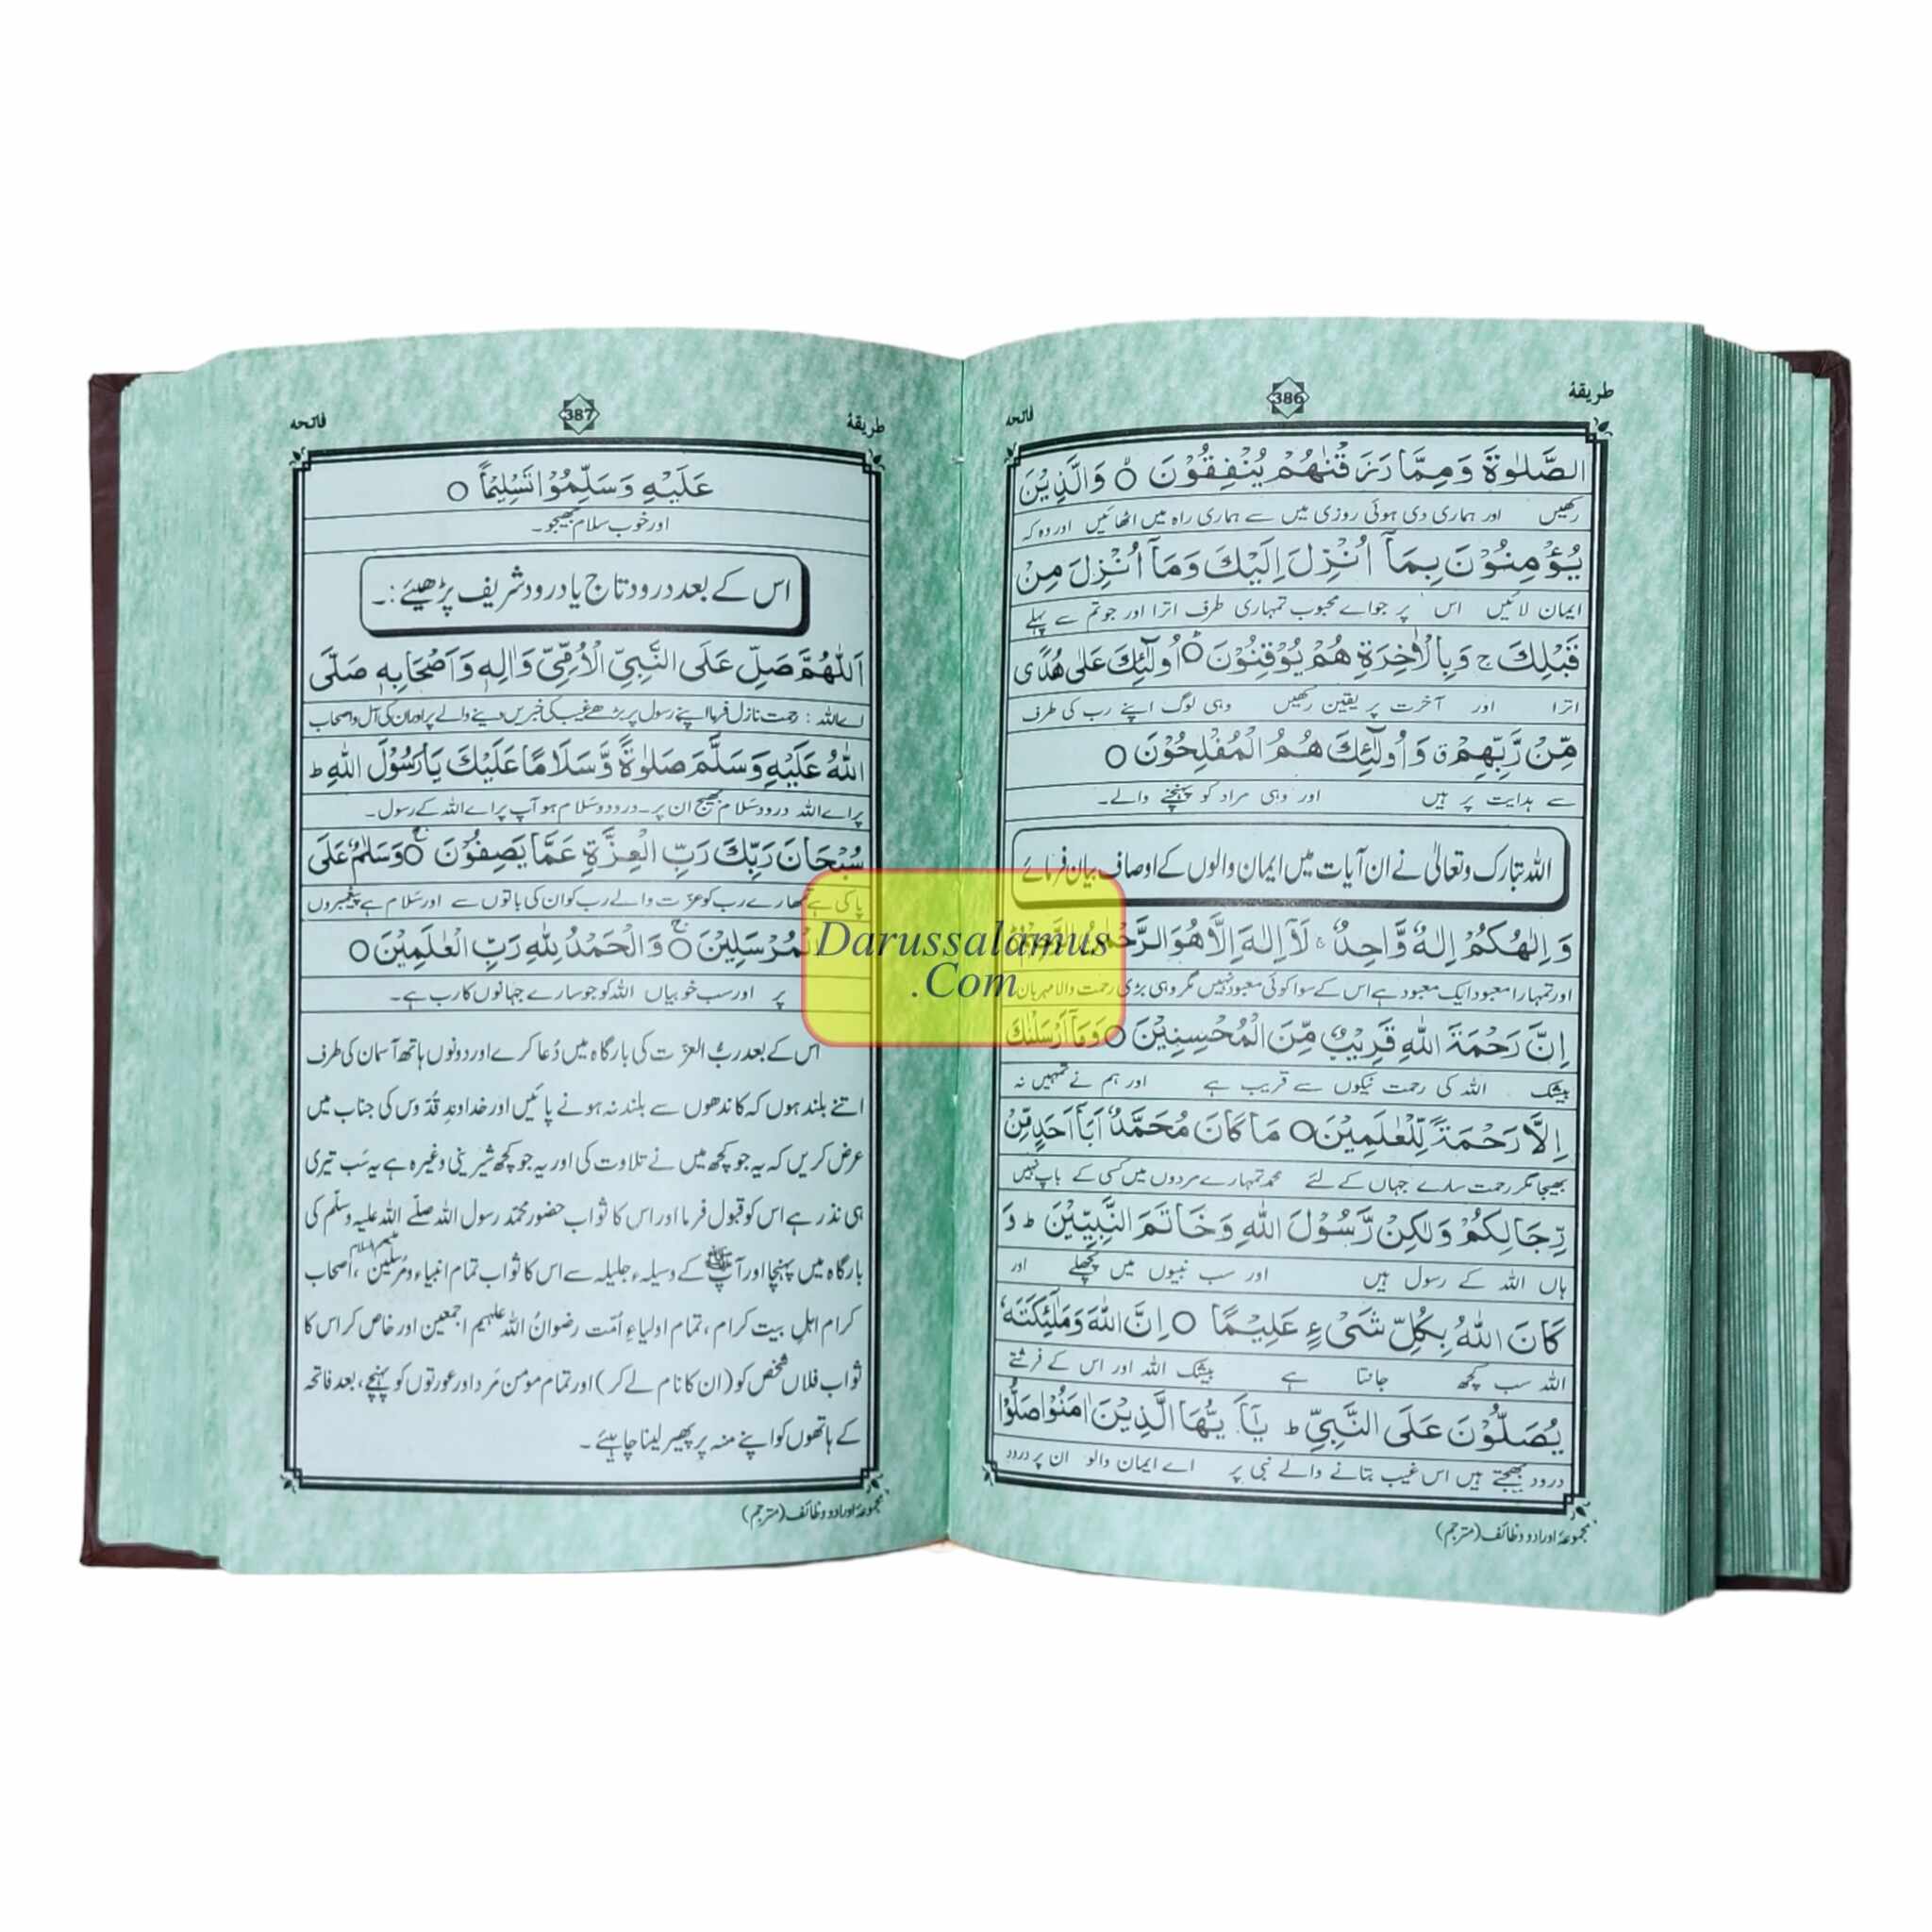 طریقۂ
386
فاتحہ
الصَّلٰوةَ وَمِمَّا رَزَقْنٰهُمْ يُنْفِقُوْنَ ۙ وَالَّذِيْنَ
رکھیں اور ہماری دی ہوئی روزی میں سے ہماری راہ میں اٹھائیں اور وہ کہ
يُؤْمِنُوْنَ بِمَآ اُنْزِلَ اِلَيْكَ وَمَآ اُنْزِلَ مِنْ
ایمان لائیں اس پر جو اے محبوب تمہاری طرف اترا اور جو تم سے پہلے
قَبْلِكَ ج وَبِالْاٰخِرَةِ هُمْ يُوْقِنُوْنَ ○ اُولٰٓئِكَ عَلٰى هُدًى
اترا اور آخرت پر یقین رکھیں وہی لوگ اپنے رب کی طرف
مِّنْ رَّبِّهِمْ ق وَاُولٰٓئِكَ هُمُ الْمُفْلِحُوْنَ ○
سے ہدایت پر ہیں اور وہی مراد کو پہنچنے والے۔
اللہ تبارک وتعالیٰ نے ان آیات میں ایمان والوں کے اوصاف بیان فرمائے
وَاِلٰهُكُمْ اِلٰهٌ وَّاحِدٌ ۚ لَآ اِلٰهَ اِلَّا هُوَ الرَّحْمٰنُ الرَّحِيْمُ
اور تمہارا معبود ایک معبود ہے اس کے سوا کوئی معبود نہیں مگر وہی بڑی رحمت والا مہربان
اِنَّ رَحْمَةَ اللهِ قَرِيْبٌ مِّنَ الْمُحْسِنِيْنَ ○ وَمَآ اَرْسَلْنٰكَ
بیشک اللہ کی رحمت نیکوں سے قریب ہے اور ہم نے تمہیں نہ
اِلَّا رَحْمَةً لِّلْعٰلَمِيْنَ ○ مَا كَانَ مُحَمَّدٌ اَبَآ اَحَدٍ مِّنْ
بھیجا مگر رحمت سارے جہاں کے لئے محمد تمہارے مردوں میں کسی کے باپ نہیں
رِّجَالِكُمْ وَلٰكِنْ رَّسُوْلَ اللهِ وَخَاتَمَ النَّبِيّٖنَ ط وَ
ہاں اللہ کے رسول ہیں اور سب نبیوں میں پچھلے اور
كَانَ اللهُ بِكُلِّ شَىْءٍ عَلِيْمًا ○ اِنَّ اللهَ وَمَلٰٓئِكَتَهٗ
اللہ سب کچھ جانتا ہے بیشک اللہ اور اس کے فرشتے
يُصَلُّوْنَ عَلَى النَّبِىِّ ط يٰٓاَيُّهَا الَّذِيْنَ اٰمَنُوْا صَلُّوْا
درود بھیجتے ہیں اس غیب بتانے والے نبی پر اے ایمان والو ان پر درود
مجموعۂ اوراد و وظائف (مترجم)
طریقۂ
387
فاتحہ
عَلَيْهِ وَسَلِّمُوْا تَسْلِيْمًا ○
اور خوب سلام بھیجو۔
اس کے بعد درود تاج یا درود شریف پڑھیئے:۔
اَللّٰهُمَّ صَلِّ عَلَى النَّبِيِّ الْاُمِّيِّ وَاٰلِهٖ وَاَصْحَابِهٖ صَلَّى
اے اللہ : رحمت نازل فرما اپنے رسول پر بڑھے غیب کی خبریں دینے والے پر اور ان کی آل و اصحاب
اللهُ عَلَيْهِ وَسَلَّمَ صَلٰوةً وَّسَلَامًا عَلَيْكَ يَارَسُوْلَ اللهِ ط
پر اے اللہ درود و سَلام بھیج ان پر۔ درود و سَلام ہو آپ پر اے اللہ کے رسول۔
سُبْحَانَ رَبِّكَ رَبِّ الْعِزَّةِ عَمَّا يَصِفُوْنَ ○ وَسَلٰمٌ عَلَى
پاکی ہے تمہارے رب کو عزت والے رب کو ان کی باتوں سے اور سَلام ہے پیغمبروں
الْمُرْسَلِيْنَ ○ وَالْحَمْدُ لِلّٰهِ رَبِّ الْعٰلَمِيْنَ ○
پر اور سب خوبیاں اللہ کو جو سارے جہانوں کا رب ہے۔
اس کے بعد ربُّ العزّت کی بارگاہ میں دُعا کرے اور دونوں ہاتھ آسمان کی طرف
اتنے بلند ہوں کہ کاندھوں سے بلند نہ ہونے پائیں اور خداوندِ قدّوس کی جناب میں
عرض کریں کہ یہ جو کچھ میں نے تلاوت کی اور یہ جو کچھ شیرینی وغیرہ ہے یہ سَب تیری
ہی نذر ہے اس کو قبول فرما اور اس کا ثواب حضور محمّد رسول اللہ صلّے اللہ علیہ وسلّم کی
بارگاہ میں پہنچا اور آپ ﷺ کے وسیلہء جلیلہ سے اس کا ثواب تمام انبیاء و مُرسلین علیہم السلام ، اَصحاب
کرام اہلِ بیت کرام ، تمام اولیاءِ اُمّت رضوانُ اللہ علیہم اجمعین اور خاص کر اس کا
ثواب فلاں شخص کو (ان کا نام لے کر) اور تمام مومن مَرد اور عورتوں کو پہنچے، بعد فاتحہ
کے ہاتھوں کو اپنے منہ پر پھیر لینا چاہیئے۔
مجموعۂ اوراد و وظائف (مترجم)
Darussalamus
.Com